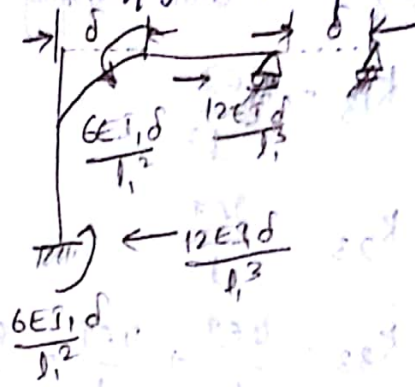 δ δ
6EI₁δ / l₁² 12EI₁δ / l₁³
12EI₁δ / l₁³
6EI₁δ / l₁²